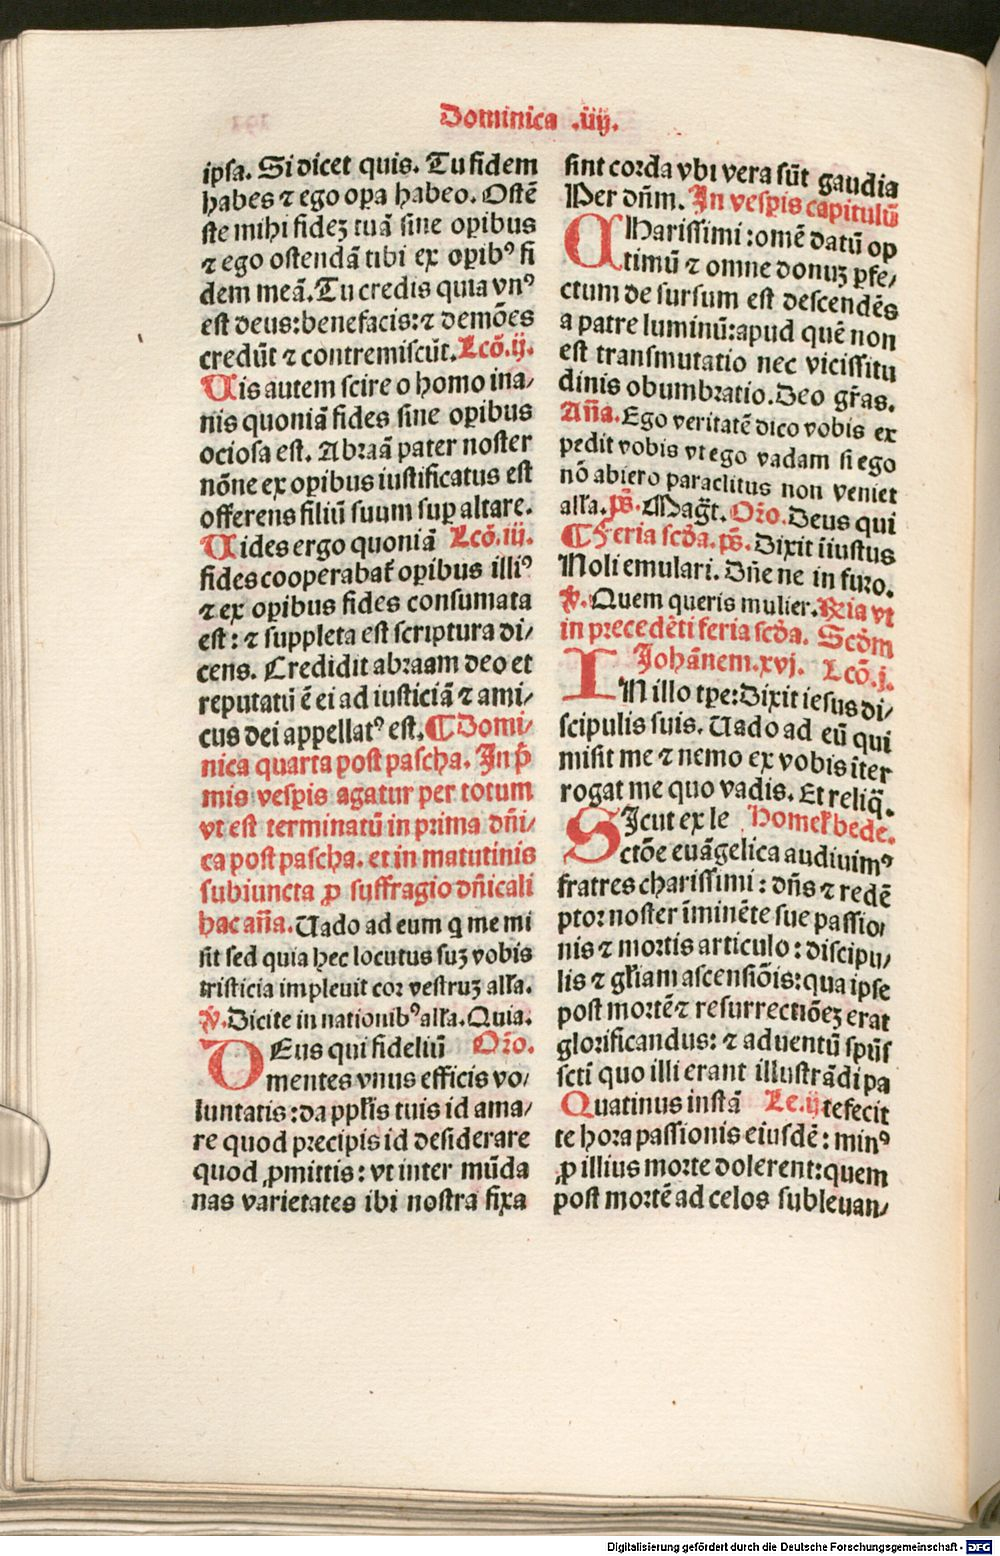 Dominica .iiij.
ipsa. Si dicet quis. Tu fidem
habes ⁊ ego opa habeo. Ostẽ
ste mihi fideʒ tuã sine opibus
⁊ ego ostendã tibi ex opibꝰ fi
dem meã. Tu credis quia vnꝰ
est deus: benefacis: ⁊ demões
credũt ⁊ contremiscũt. Lcõ. ij.
Uis autem scire o homo ina⸗
nis quoniã fides sine opibus
ociosa est. Abraã pater noster
nõne ex opibus iustificatus est
offerens filiũ suum sup altare.
Uides ergo quoniã Lcõ. iij.
fides cooperabat̃ opibus illiꝰ
⁊ ex opibus fides consumata
est: ⁊ suppleta est scriptura di⸗
cens. Credidit abraam deo et
reputatũ ẽ ei ad iusticiã ⁊ ami⸗
cus dei appellatꝰ est. ¶ Domi⸗
nica quarta post pascha. In p̃
mis vespis agatur per totum
vt est terminatũ in prima dñi⸗
ca post pascha. et in matutinis
subiuncta ꝓ suffragio dñicali
hac aña. Uado ad eum q me mi
sit sed quia hec locutus suʒ vobis
tristicia impleuit cor vestruʒ alľa.
℣. Dicite in nationibꝰ alľa. Quia.
DEus qui fideliũ Oŕo.
mentes vnus efficis vo⸗
luntatis: da pplis tuis id ama⸗
re quod precipis id desiderare
quod ꝓmittis: vt inter mũda
nas varietates ibi nostra fixa
sint corda vbi vera sũt gaudia
Per dñm. In vespis capitulũ
CHarissimi: omẽ datũ op
timũ ⁊ omne donuʒ pfe⸗
ctum de sursum est descendẽs
a patre luminũ: apud quẽ non
est transmutatio nec vicissitu
dinis obumbratio. Deo gr̃as.
Aña. Ego veritatẽ dico vobis ex
pedit vobis vt ego vadam si ego
nõ abiero paraclitus non veniet
alľa. pš. Mag̃t. Oŕo. Deus qui
¶ Feria scďa. pš. Dixit iiustus
Noli emulari. Dñe ne in furo.
℣. Quem queris mulier. Rria vt
in precedẽti feria scďa. Scďm
Johãnem. xvj. Lcõ. j.
IN illo tpe: Dixit iesus di⸗
scipulis suis. Uado ad eũ qui
misit me ⁊ nemo ex vobis ĩter
rogat me quo vadis. Et reliq̃.
SIcut ex le Homeľ bede.
ctõe euãgelica audiuimꝰ
fratres charissimi: dñs ⁊ redẽ
ptor noster ĩminẽte sue passio⸗
nis ⁊ mortis articulo: discipu⸗
lis ⁊ gľiam ascensiõis: qua ipse
post mortẽ ⁊ resurrectiõeʒ erat
glorificandus: ⁊ aduentũ spũs
scti quo illi erant illustrãdi pa
Quatinus instã Le. ij tefecit
te hora passionis eiusdẽ: minꝰ
ꝓ illius morte dolerent: quem
post mortẽ ad celos subleuan⸗
Digitalisierung gefördert durch die Deutsche Forschungsgemeinschaft - DFG